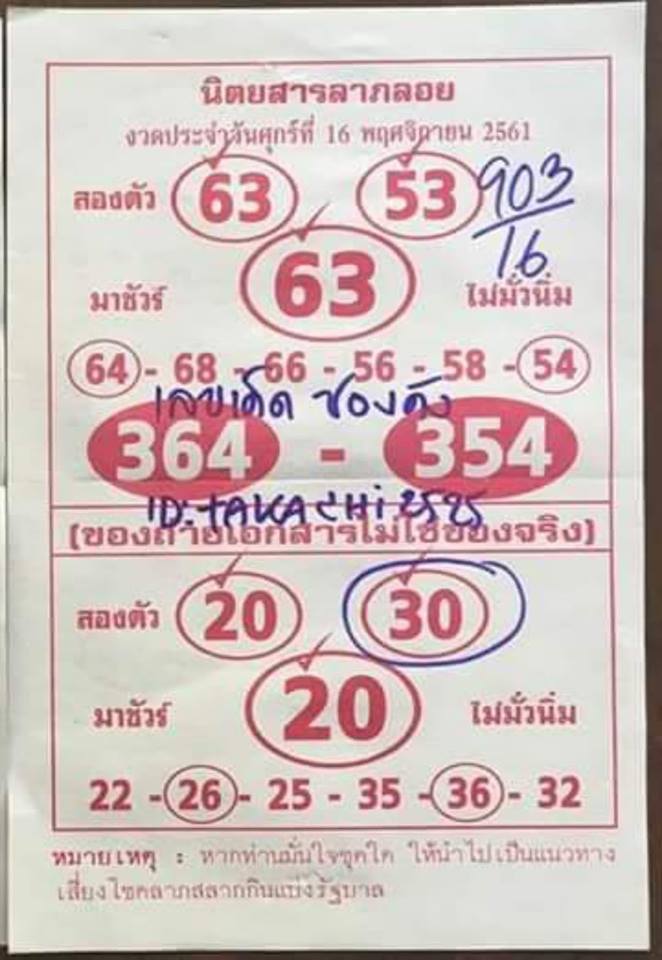 นิตยสารลาภลอย
งวดประจำวันศุกร์ที่ 16 พฤศจิกายน 2561
สองตัว 63 53 903
16
63
มาชัวร์ ไม่มั่วนิ่ม
64 - 68 - 66 - 56 - 58 - 54
เลขเด็ด ซองดัง
364 - 354
ID: TAKACHI2525
(ของถ่ายเอกสารไม่ใช่ของจริง)
สองตัว 20 30
20
มาชัวร์ ไม่มั่วนิ่ม
22 - 26 - 25 - 35 - 36 - 32
หมายเหตุ : หากท่านมั่นใจชุดใด ให้นำไปเป็นแนวทาง
เสี่ยงโชคลาภสลากกินแบ่งรัฐบาล